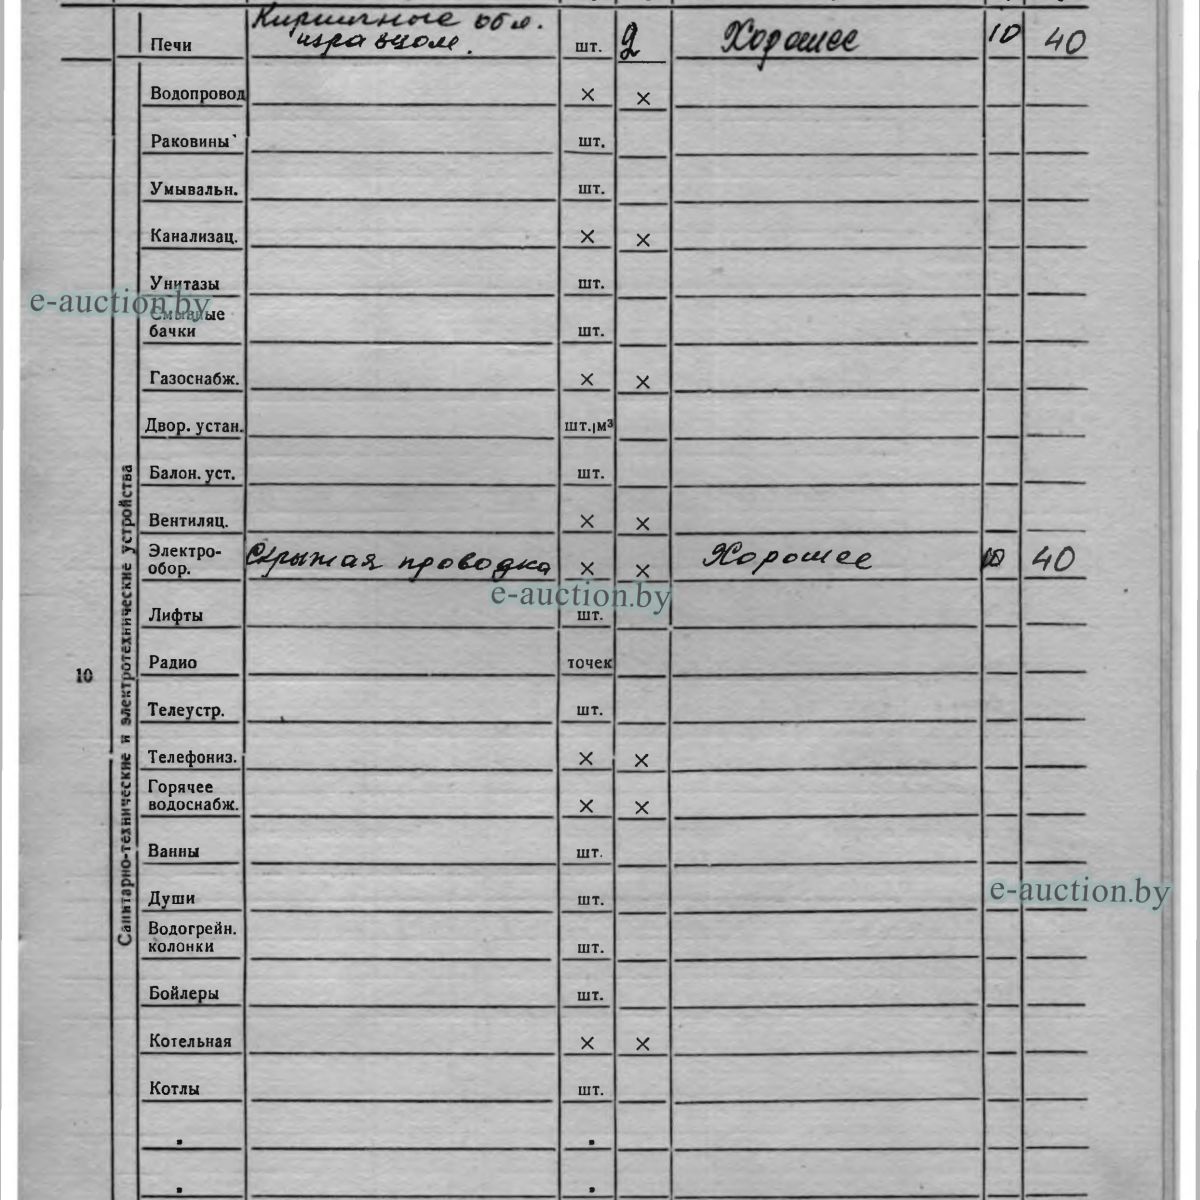 Печи Кирпичные обл. изразцом. шт. 2 Хорошее 10 40
Водопровод × ×
Раковины шт.
Умывальн. шт.
Канализац. × ×
Унитазы шт.
e-auction.by
Смывные
бачки шт.
Газоснабж. × ×
Двор. устан. шт.|м³
Балон. уст. шт.
Вентиляц. × ×
Электро-
обор. Скрытая проводка × × Хорошее 10 40
e-auction.by
Лифты шт.
10
Санитарно-технические и электротехнические устройства
Радио точек
Телеустр. шт.
Телефониз. × ×
Горячее
водоснабж. × ×
Ванны шт.
e-auction.by
Души шт.
Водогрейн.
колонки шт.
Бойлеры шт.
Котельная × ×
Котлы шт.